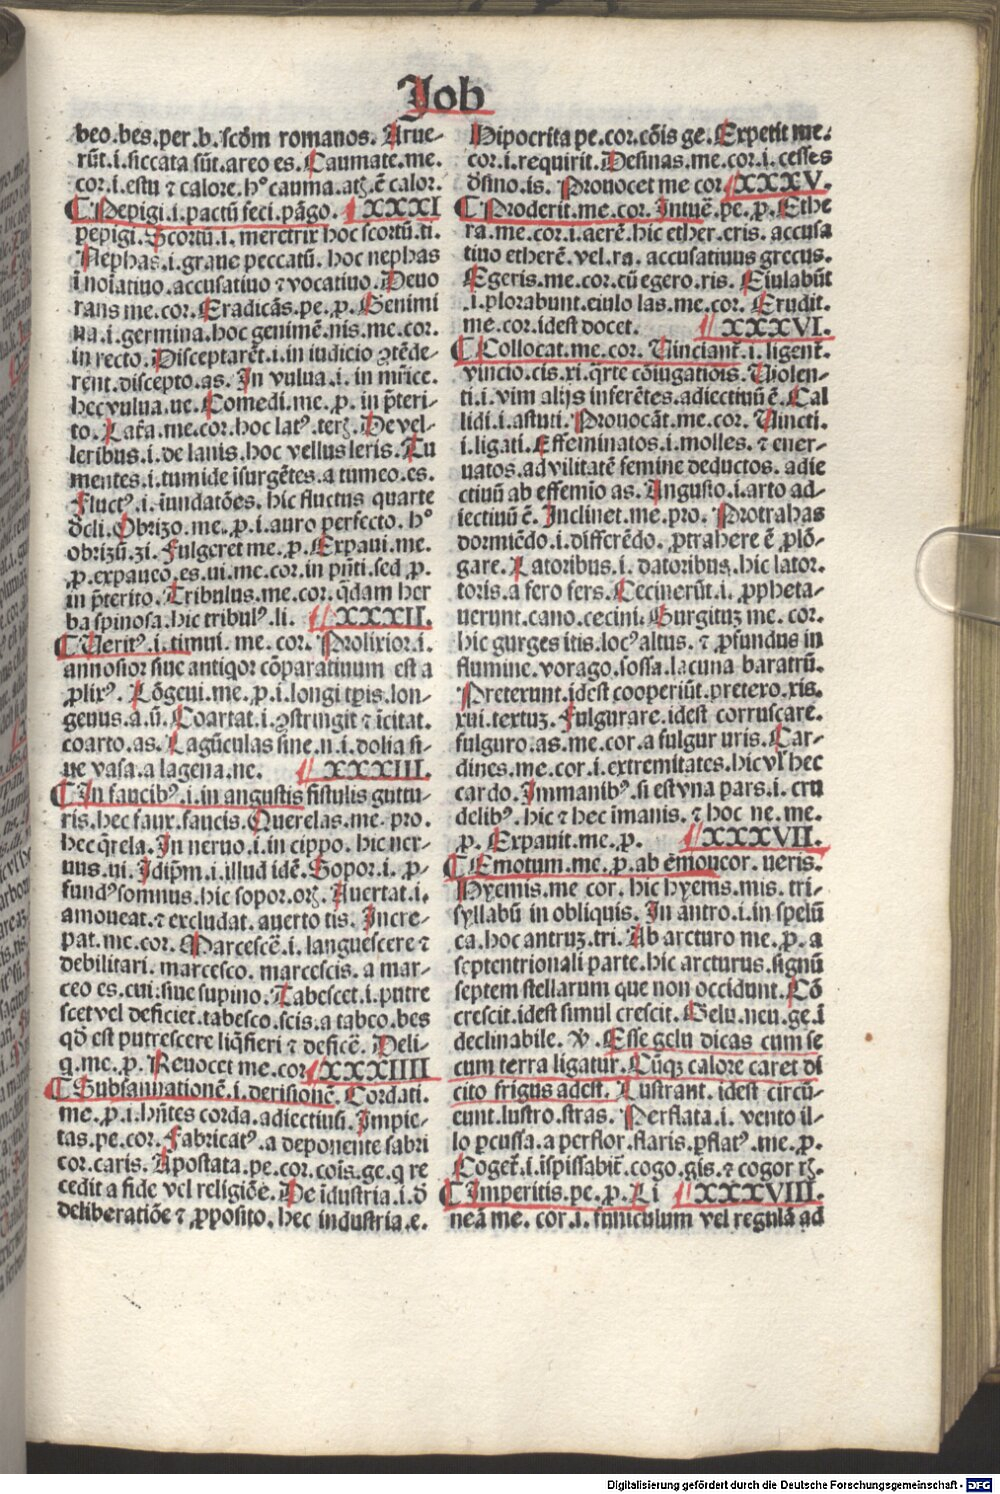 Job
beo.bes.per.b.scḋm romanos. Arue-
rūt.i.siccata sūt.areo es. Caumate.me.
cor.i.estu ⁊ calore.h° cauma.atꝫ.ē calor.
¶ Pepigi.i.pactū feci.pāgo. XXXI
pepigi. Scortū.i.meretrix hoc scortū.ti.
Nephas.i.graue peccatū. hoc nephas
ī noīatiuo.accusatiuo ⁊ vocatiuo. Deuo
rans me.cor. Eradicās.pe.p. Genimi
na.i.germina.hoc genimē.nis.me.cor.
in recto. Disceptarēt.i.in iudicio ꝯtēde-
rent.discepto.as. In vulua.i.in mr̄ice.
hec vulua.ue. Comedi.me.p.in p̄teri-
to. Latr̄a.me.cor.hoc latꝰ.terꝫ. De vel-
leribus.i.de lanis.hoc vellus leris. Tu
mentes.i.tumide īsurgētes.a tumeo.es.
Fluctꝰ.i.īundatōes.hic fluctus quarte
dcli. Obrizo.me.p.i.auro perfecto.h°
obrizū.zi. Fulgeret me.p. Expaui.me.
p.expaueo.es.ui.me.cor.in pn̄ti.sed p.
in p̄terito. Tribulus.me.cor.q̄dam her
ba spinosa.hic tribulꝰ.li. XXXII.
¶ Ueritꝰ.i.timui.me.cor. Prolixior.i.
annosior siue antiqor cōparatiuum est a
ꝓlixꝰ. Lōgeui.me.p.i.longi tꝑis.lon-
geuus.a.ū. Coartat.i.ꝯstringit ⁊ icitat.
coarto.as. Lagūculas sine.n.i.dolia si-
ue vasa.a lagena.ne. XXXIII.
¶ In faucibꝰ.i.in angustis fistulis guttu-
ris.hec faux.faucis. Querelas.me.pro.
hec qr̄ela. In neruo.i.in cippo.hic ner-
uus.ui. Idip̄m.i.illud idē. Sopor.i.p-
fundꝰ somnus.hic sopor.orꝫ. Auertat.i.
amoueat.⁊ excludat.auerto tis. Incre-
pat.me.cor. Marcescē.i.languescere ⁊
debilitari.marcesco.marcescis.a mar-
ceo es.cui.siue supino. Tabescet.i.putre
scet vel deficiet.tabesco.scis.a tabeo.bes
qḋ est putrescere liq̄fieri ⁊ deficē. Deli-
q.me.p. Reuocet me.cor XXXIIII
¶ Subsannationē.i.derisionē. Cordati.
me.p.i.hn̄tes corda.adiectiuū. Impie-
tas.pe.cor. Fabricatꝰ.a deponente fabri
cor.caris. Apostata.pe.cor.cōis.ge.q re
cedit a fide vel religiōe. De īdustria.i.ḋ
deliberatiōe ⁊ ꝓposito.hec industria.e.
Hipocrita pe.cor.cōis ge. Expetit me.
cor.i.requirit. Desinas.me.cor.i.cesses
ḋsino.is. Prouocet me cor XXXV.
¶ Proderit.me.cor. Intuē.pe.p. Ethe
ra.me.cor.i.aerē.hic ether.eris.accusa
tiuo etherē.vel.ra.accusatiuus grecus.
Egeris.me.cor.cū egero.ris. Eiulabūt
.i.plorabunt.eiulo las.me.cor. Erudit.
me.cor.idest docet. XXXVI.
¶ Collocat.me.cor. Uinciant̄.i.ligent̄.
vincio.cis.xi.q̄rte cōiugatiōis. Uiolen-
ti.i.vim alijs inferētes.adiectiuū ē. Cal
lidi.i.astuti. Prouocāt.me.cor. Uincti.
.i.ligati. Effeminatos.i.molles.⁊ ener-
uatos.ad vilitatē femine deductos.adie
ctiuū ab effemio as. Angusto.i.arto ad-
iectiuū ē. Inclinet.me.pro. Protrahas
dormiēdo.i.differēdo. ꝓtrahere ē plō-
gare. Latoribus.i.datoribus.hic lator.
toris.a fero fers. Cecinerūt.i.ꝓpheta-
uerunt.cano.cecini. Gurgituꝫ me.cor.
hic gurges itis.locꝰ altus.⁊ ꝓfundus in
flumine.vorago.fossa.lacuna baratrū.
Pretexunt.idest cooperiūt.pretexo.xis.
xui.textuꝫ. Fulgurare.idest corruscare.
fulguro.as.me.cor.a fulgur uris. Car-
dines.me.cor.i.extremitates.hic vl̄ hec
cardo. Immanibꝰ.si est vna pars.i.cru
delibꝰ.hic ⁊ hec imanis.⁊ hoc ne.me.
p. Expauit.me.p. XXXVII.
¶ Emotum.me.p.ab ēmoueor.ueris.
Hyemis.me cor.hic hyems.mis.tri-
syllabū in obliquis. In antro.i.in spelū
ca.hoc antruꝫ.tri. Ab arcturo me.p.a
septentrionali parte.hic arcturus.signū
septem stellarum que non occidunt. Cō
crescit.idest simul crescit. Gelu.neu.ge.ī
declinabile. ꝟ. Esse gelu dicas cum se
cum terra ligatur. Cūqꝫ calore caret di
cito frigus adest. Lustrant.idest circū-
eunt.lustro.stras. Perflata.i.vento il-
lo ꝑcussa.a perflor.flaris.ꝑflatꝰ.me.p.
Coget̄.i.īspissabit̄.cogo.gis.⁊ cogor rꝫ.
¶ Imperitis.pe.p. Li XXXVIII.
neā me. cor.i.funiculum vel regulā ad
Digitalisierung gefördert durch die Deutsche Forschungsgemeinschaft - DFG